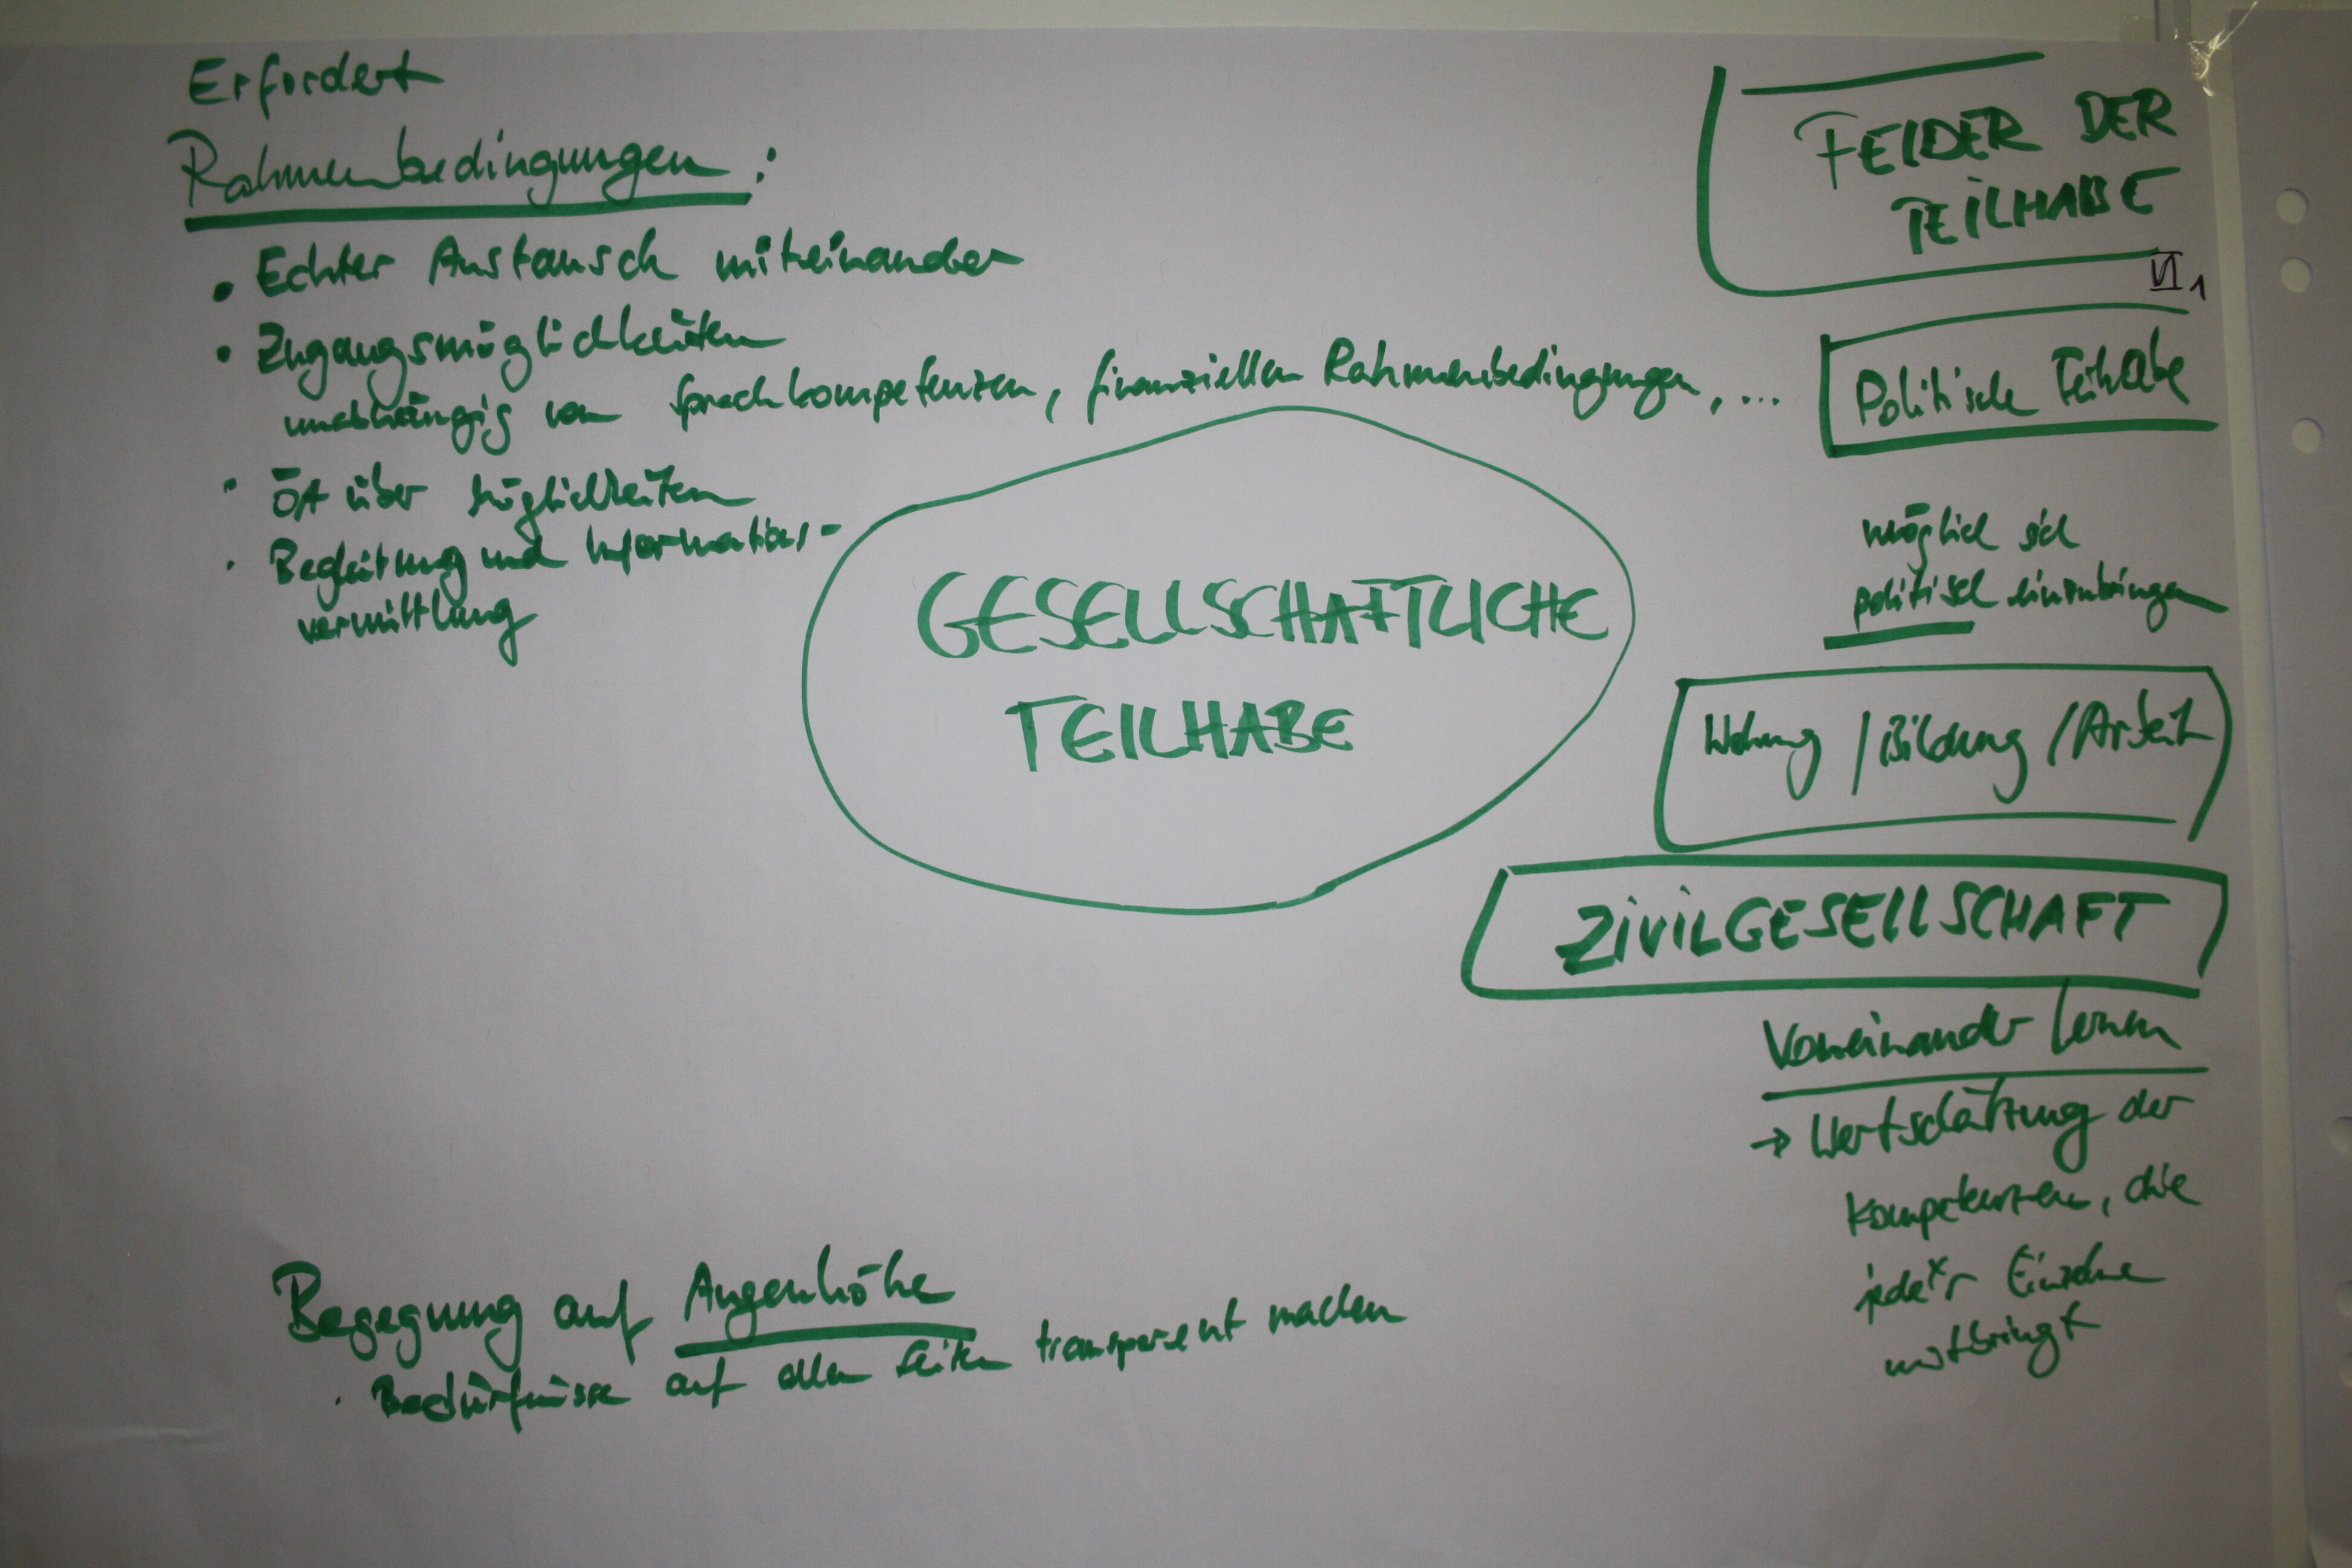 Erfordert
Rahmenbedingungen:
• Echter Austausch miteinander
• Zugangsmöglichkeiten
unabhängig von Sprachkompetenzen, finanziellen Rahmenbedingungen, ...
• ÖA über Möglichkeiten
• Begleitung und Informations-
vermittlung
GESELLSCHAFTLICHE
TEILHABE
FELDER DER
TEILHABE
1
Politische Teilhabe
möglich sich
politisch einzubringen
Wohnung / Bildung / Arbeit
ZIVILGESELLSCHAFT
Voneinander lernen
→ Wertschätzung der
Kompetenzen, die
jede*r Einzelne
mitbringt
Begegnung auf Augenhöhe
• Bedürfnisse auf allen Seiten transparent machen